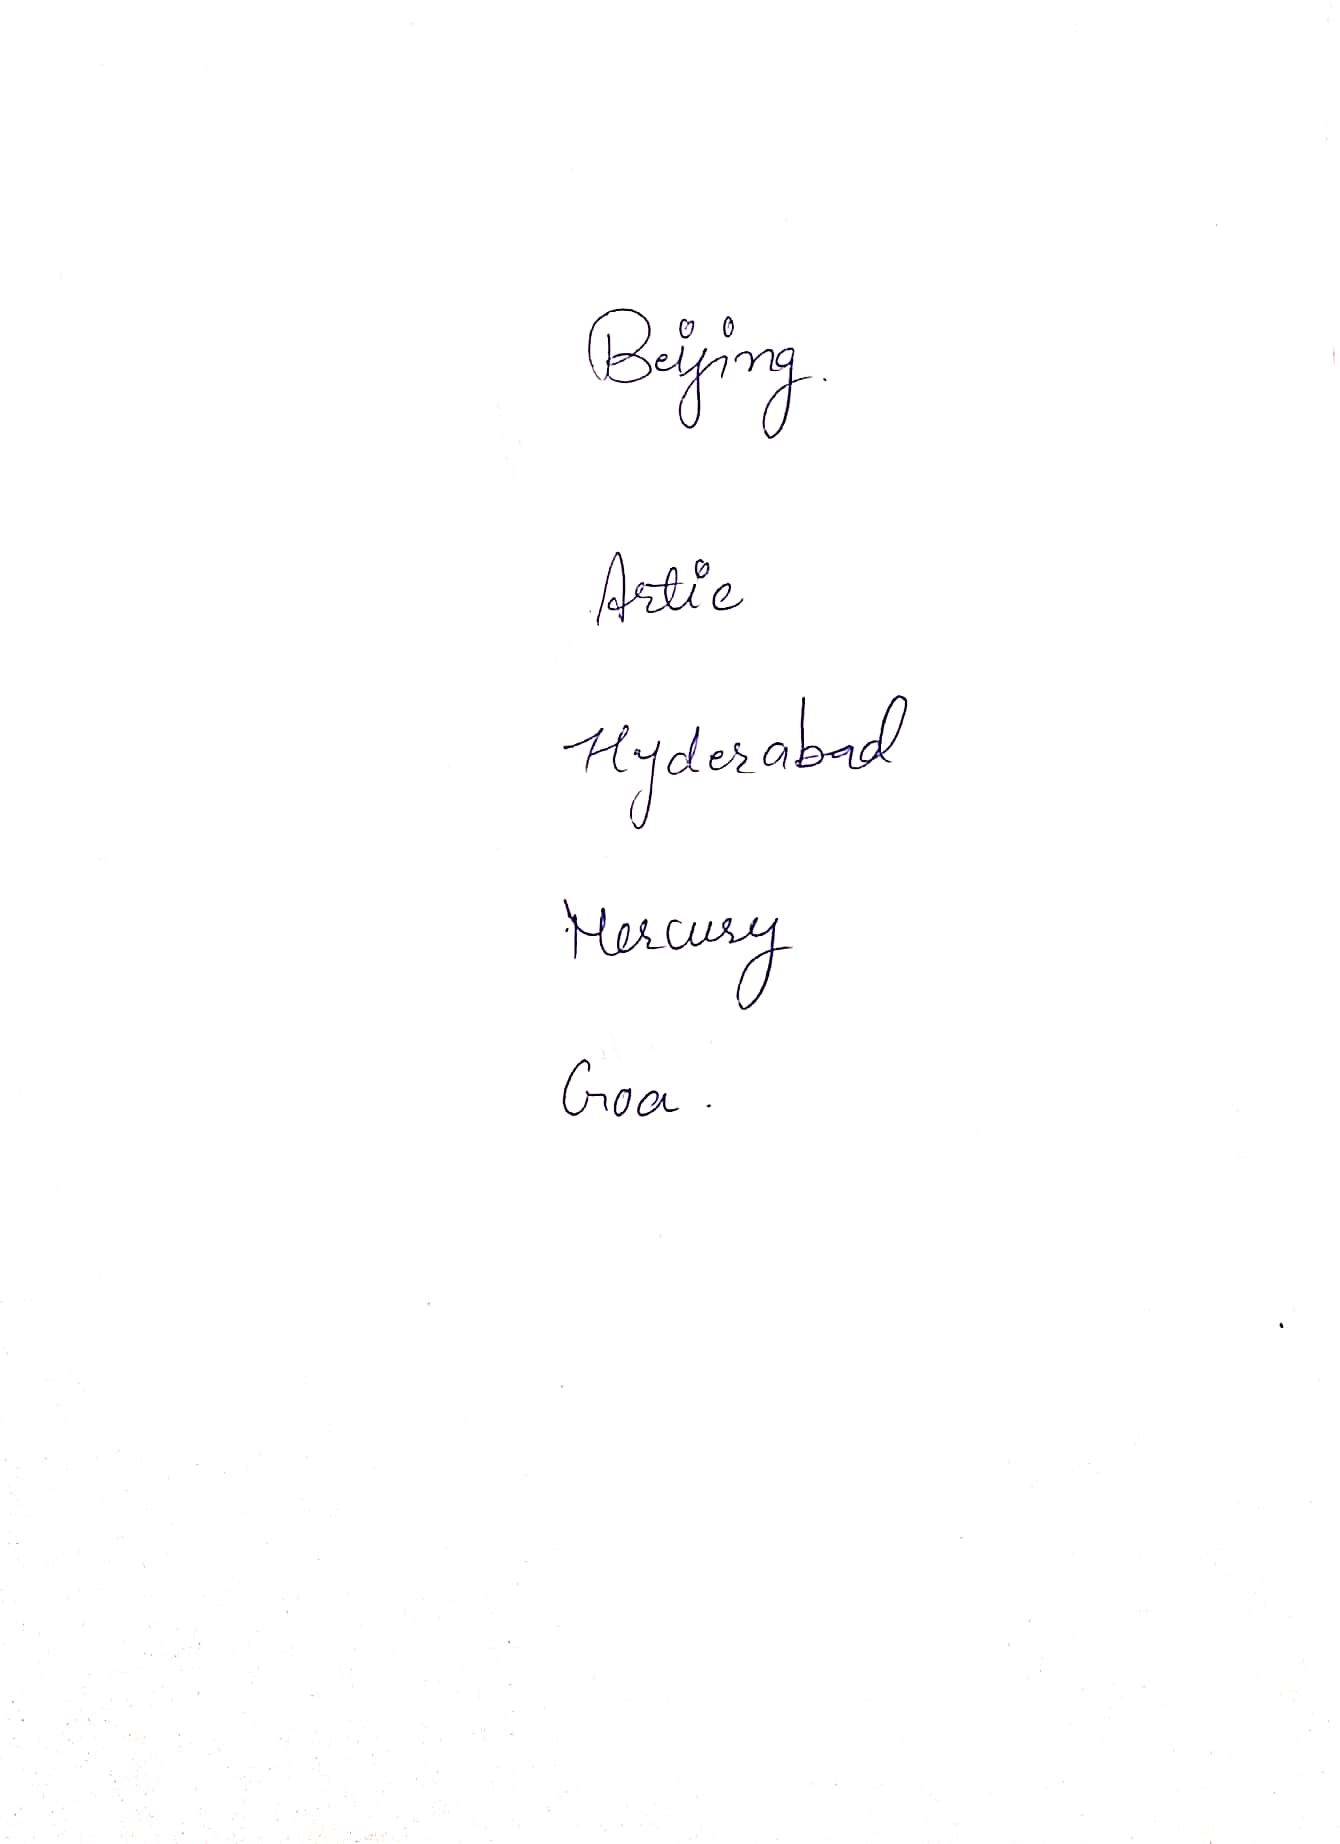 Beijing.
Artic
Hyderabad
Mercury
Goa.